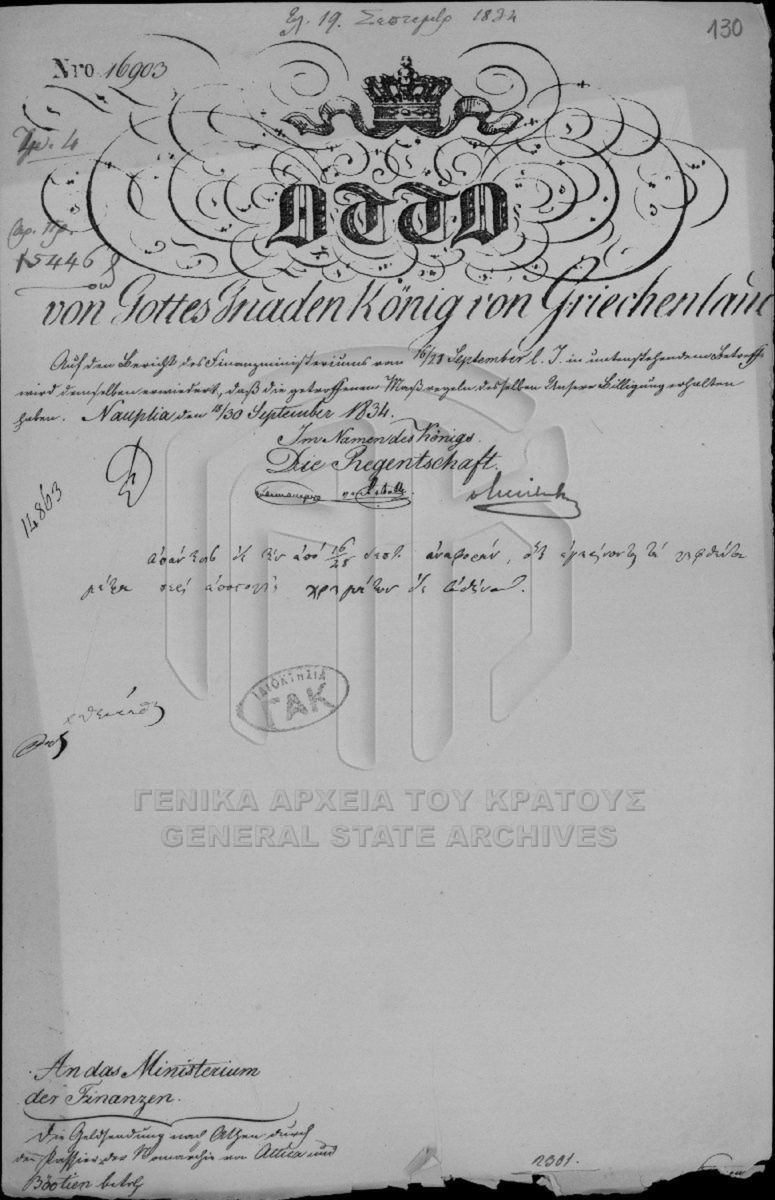 Ελ. 19. Σεπτεμβρ 1834
130
Nro 16903
15446
OTTO
von Gottes Gnaden König von Griechenland
Auf den Bericht des Finanzministeriums vom 16/28 September l. J. in untenstehendem Betreff
wird demselben erwiedert, daß die getroffenen Maßregeln desselben Unsere Billigung erhalten
haben. Nauplia den 18/30 September 1834.
Im Namen des Königs.
Die Regentschaft.
14863
ἀπὸ 16/28 Σεπτ. ἀναφορὰν, ὅτι ἐγκρίνονται τὰ ληφθέντα
μέτρα περὶ ἀποστολῆς χρημάτων εἰς Ἀθήνας.
ΙΔΙΟΚΤΗΣΙΑ
ΓΑΚ
ΓΕΝΙΚΑ ΑΡΧΕΙΑ ΤΟΥ ΚΡΑΤΟΥΣ
GENERAL STATE ARCHIVES
An das Ministerium
der Finanzen.
Die Geldsendung nach Athen durch
den Kassier der Nomarchie von Attica und
Böotien betrf
2301.